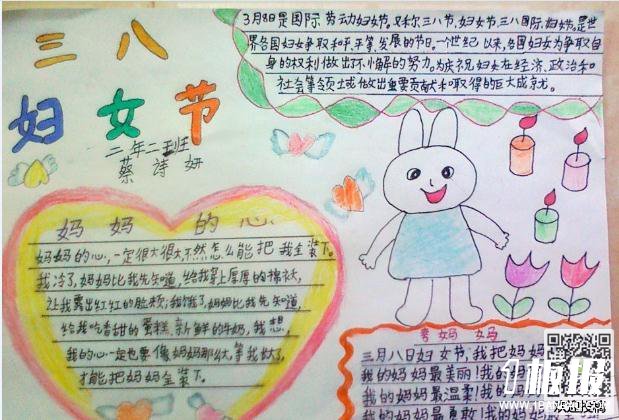 三八
妇女节
二年二班
蔡诗妍
3月8日是国际劳动妇女节。又称三八节、妇女节、三八国际妇女节。是世
界各国妇女争取和平、平等、发展的节日。一个世纪以来,各国妇女为争取自
身的权利做出了不懈的努力。为庆祝妇女在经济、政治和
社会等领土或做出重要贡献和取得的巨大成就。
妈妈的心
妈妈的心,一定很大很大,不然怎么能把我全装下。
我冷了,妈妈比我先知道,给我穿上厚厚的棉袄,
让我露出红红的脸颊;我饿了,妈妈比我先知道,
给我吃香甜的蛋糕、新鲜的牛奶,我想
我的心一定也要像妈妈那么大,等我大了,
才能把妈妈全装下。
夸妈妈
三月八日妇女节,我把妈妈
我的妈妈最美丽!我的妈
我的妈妈最温柔!我的妈
我的妈妈最勇敢!我的
板报